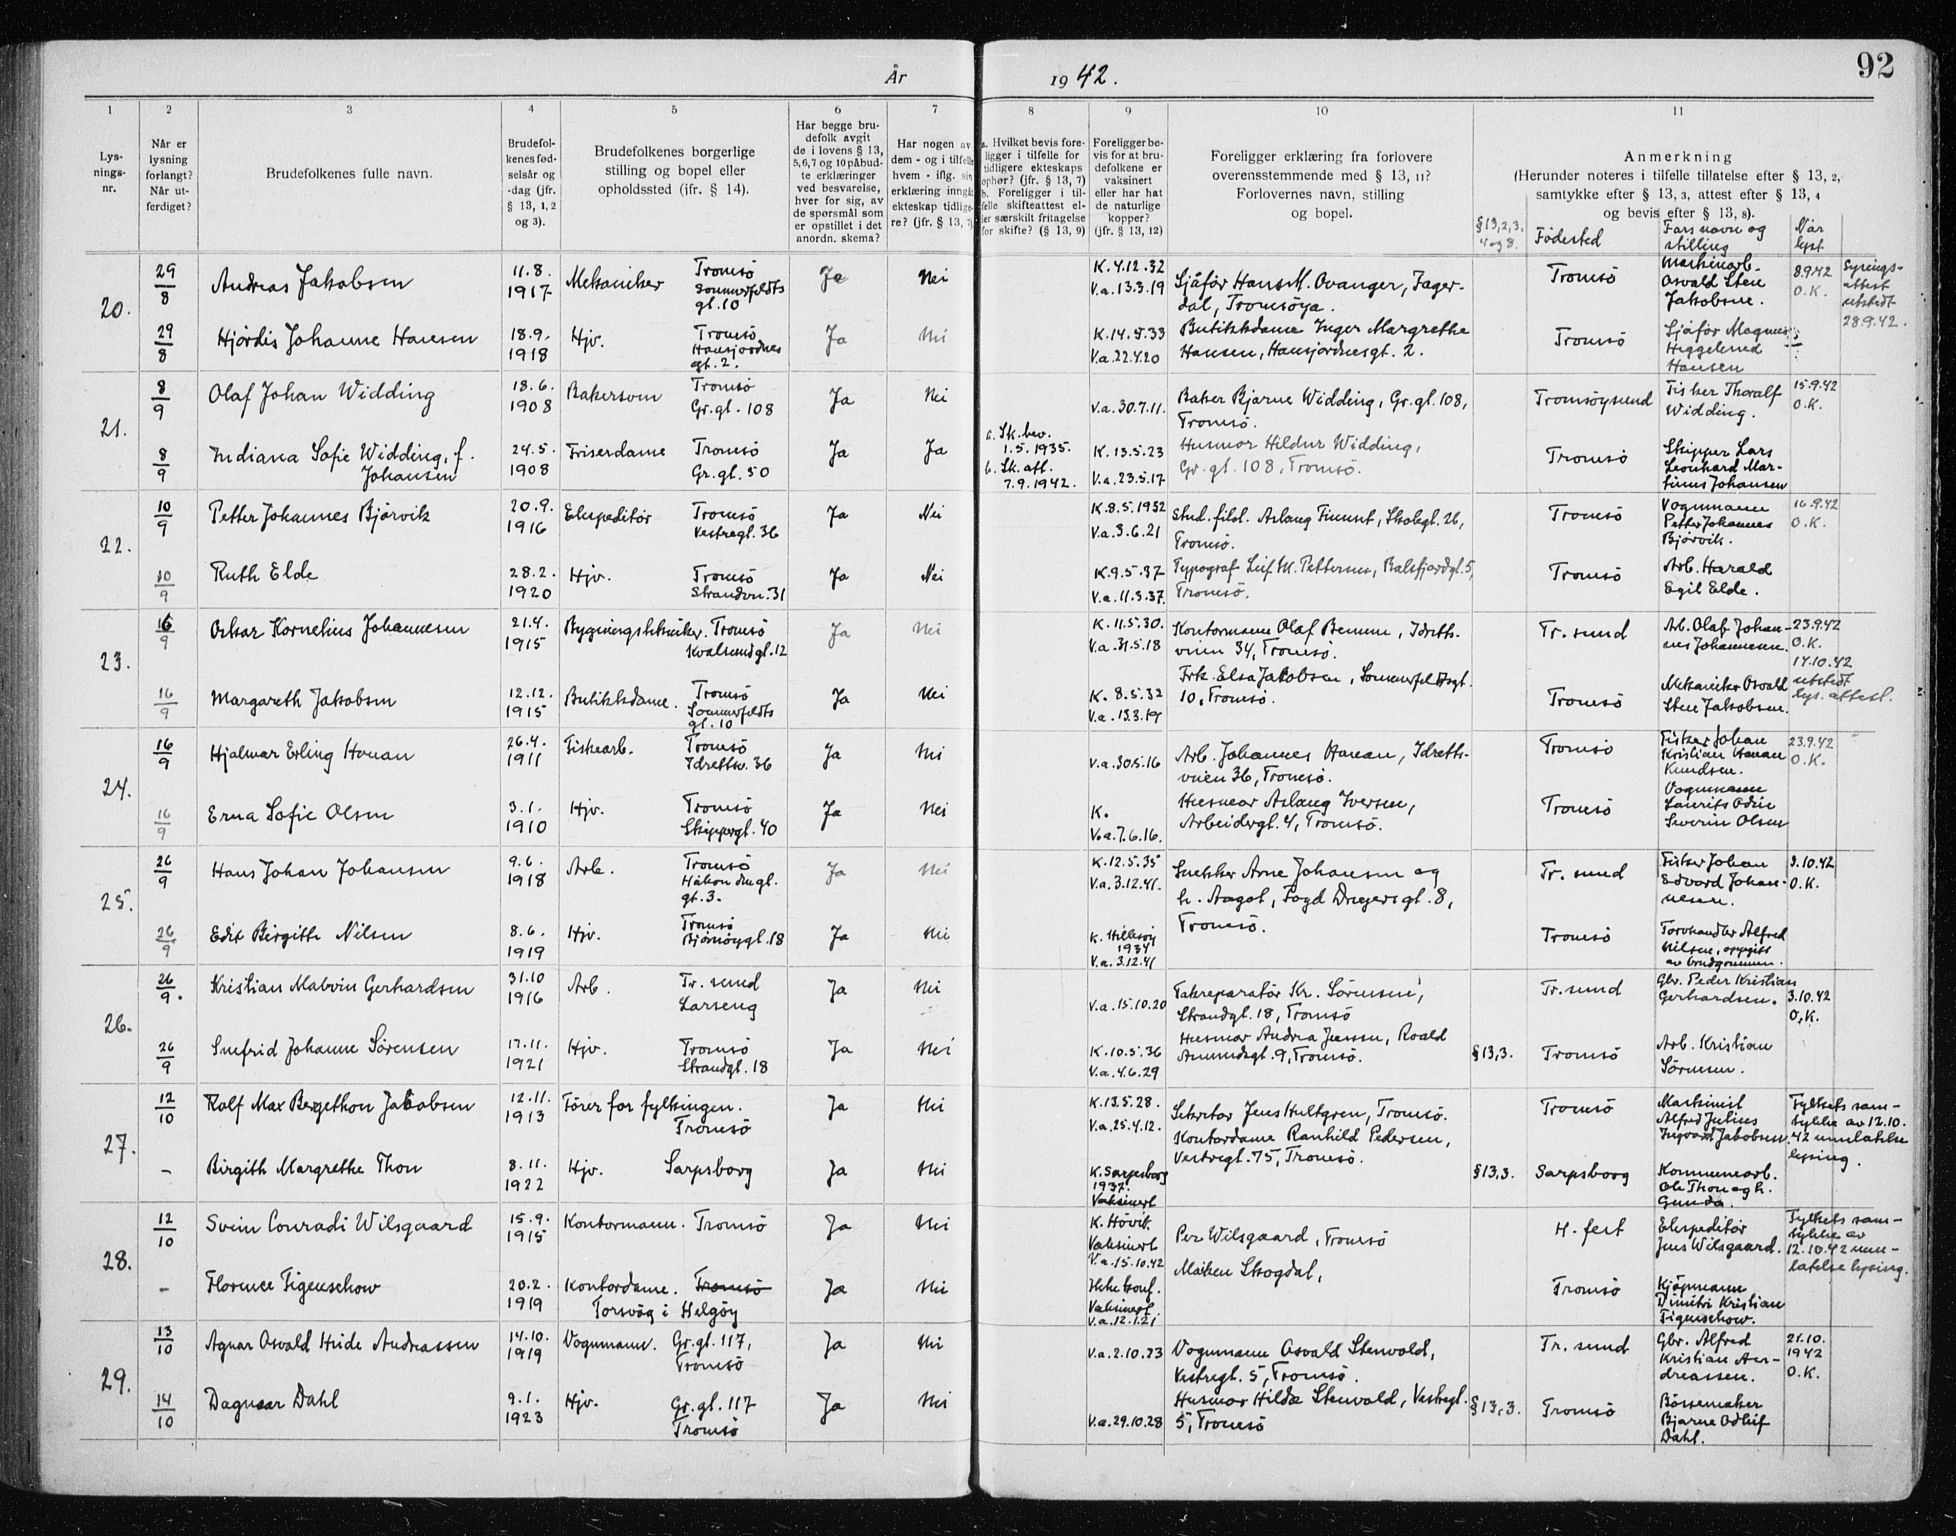 92
År 1942.
1 2 3 4 5 6 7 8 9 10 11
Lys-
nings-
nr.
Når er
lysning
forlangt?
Når ut-
ferdiget?
Brudefolkenes fulle navn.
Brudefol-
kenes fød-
selsår og
-dag (jfr.
§ 13, 1, 2
og 3).
Brudefolkenes borgerlige
stilling og bopel eller
opholdssted (jfr. § 14).
Har begge bru-
defolk avgit
de i lovens § 13,
5, 6, 7 og 10 påbud-
te erklæringer
ved besvarelse,
hver for sig, av
de spørsmål som
er opstillet i det
anordn. skema?
Har nogen av
dem - og i tilfelle
hvem - iflg. sin
erklæring inngå
ekteskap tidlige-
re? (jfr. § 13, 7)
a. Hvilket bevis fore-
ligger i tilfelle for
tidligere ekteskaps
ophør? (jfr. § 13, 7)
b. Foreligger i til-
felle skifteattest el-
ler særskilt fritagelse
for skifte? (§ 13, 9)
Foreligger be-
vis for at bru-
defolkene er
vaksinert
eller har hat
de naturlige
kopper?
(jfr. § 13, 12)
Foreligger erklæring fra forlovere
overensstemmende med § 13, 11?
Forlovernes navn, stilling
og bopel.
Anmerkning
(Herunder noteres i tilfelle tillatelse efter § 13, 2,
samtykke efter § 13, 3, attest efter § 13, 4
og bevis efter § 13, 8).
§ 13, 2, 3,
4 og 8.
Fødested
Fars navn og
stilling
Når
lyst
20.
29/8 Andreas Jakobsen 11.8. 1917 Mekaniker Tromsö
Sommerfeldts
gt. 10
Ja Nei
K. 4.12.32
V.a. 13.3.19
Sjåför Hans M. Ovanger, Fager-
dal, Tromsöya.
Tromsö
Maskinarb.
Osvald Sten
Jakobsen.
8.9.42
O.K.
Lysings-
attest
utstedt
28.9.42.
29/8 Hjördis Johanne Hansen 18.9. 1918 Hjv. Tromsö
Hansjordnes
gt. 2.
Ja Nei
K. 14.5.33
V.a. 22.4.20
Butikkdame Inger Margrethe
Hansen, Hansjordnesgt. 2.
Tromsö
Sjåför Magnus
Heggelund
Hansen
21.
8/9 Olaf Johan Widding 18.6. 1908 Bakersvenn Tromsö
Gr.gt. 108
Ja Nei
V.a. 30.7.11.
Baker Bjarne Widding, Gr.gt. 108,
Tromsö.
Tromsöysund
Fisker Thoralf
Widding.
15.9.42
O.K.
8/9 Indiana Sofie Widding, f.
Johansen
24.5. 1908 Friserdame Tromsö
Gr.gt. 50
Ja Ja
a. Sk.bev.
1.5.1935.
b. Sk.att.
7.9.1942.
K. 13.5.23
V.a. 23.5.17
Husmor Hildur Widding,
Gr.gt. 108, Tromsö.
Tromsö
Skipper Lars
Leonhard Mar-
tinus Johansen
22.
10/9 Petter Johannes Bjørvik 20.9. 1916 Ekspeditör Tromsö
Vestregt. 36
Ja Nei
K. 8.5.1932
V.a. 3.6.21
Stud. filol. Aslaug Finnut, Skolegt. 26,
Tromsö.
Tromsö
Vognmann
Petter Johannes
Bjørvik.
16.9.42
O.K.
10/9 Ruth Elde 28.2. 1920 Hjv. Tromsö
Strandvn. 31
Ja Nei
K. 9.5.37
V.a. 11.3.37.
Typograf Leif M. Pettersen, Balsfjordgt. 5,
Tromsö.
Tromsö
Arb. Harald
Egil Elde.
23.
16/9 Oskar Kornelius Johannesen 21.4. 1915 Bygningstekniker. Tromsö
Kvalsundgt. 12
Ja Nei
K. 11.5.30.
V.a. 31.5.18
Kontormann Olaf Benum, Idretts-
veien 34, Tromsö.
Tr. sund
Arb. Olaf Johan-
nes Johannesen.
23.9.42
O.K.
14.10.42
utstedt
lys. attest.
16/9 Margareth Jakobsen 12.12. 1915 Butikkdame. Tromsö
Sommerfeldts
gt. 10
Ja Nei
K. 8.5.32
V.a. 13.3.19
Frk. Elsa Jakobsen, Sommerfeldtsgt.
10, Tromsö.
Tromsö
Mekaniker Osvald
Sten Jakobsen.
24.
16/9 Hjalmar Erling Hanan 26.4. 1911 Fiskearb. Tromsö
Idrettsv. 36
Ja Nei
V.a. 30.5.16
Arb. Johannes Hanan, Idretts-
veien 36, Tromsö.
Tromsö
Fisker Johan
Kristian Hanan
Knudsen.
23.9.42
O.K.
16/9 Erna Sofie Olsen 3.1. 1910 Hjv. Tromsö
Skippergt. 40
Ja Nei
K.
V.a. 7.6.16.
Husmor Aslaug Iversen,
Arbeidergt. 4, Tromsö.
Tromsö
Vognmann
Laurits Odin
Severin Olsen
25.
26/9 Hans Johan Johansen 9.6. 1918 Arb. Tromsö
Håkon den gl.
gt. 3.
Ja Nei
K. 12.5.35
V.a. 3.12.41.
Snekker Arne Johansen og
h. Aagot, Fogd Dreyersgt. 8,
Tromsö.
Tr. sund
Fisker Johan
Edvard Johan-
nesen.
3.10.42
O.K.
26/9 Edit Birgitte Nilsen 8.6. 1919 Hjv. Tromsö
Bjørnöygt. 18
Ja Nei
K. Hillesöy
1934
V.a. 3.12.41
Tromsö
Torvhandler Alfred
Nilsen, oppgitt
av brudgommen.
26.
26/9. Kristian Malvin Gerhardsen 31.10 1916 Arb. Tr. sund
Larseng
Ja Nei
V.a. 15.10.20
Takreparatör Kr. Sörensen,
Strandgt. 18, Tromsö
Tr. sund
Gbr. Peder Kristian
Gerhardsen.
3.10.42
O.K.
26/9 Snefrid Johanne Sørensen 17.11. 1921 Hjv. Tromsö
Strandgt. 18
Ja Nei
K. 10.5.36
V.a. 4.6.29
Husmor Andrea Jensen, Roald
Amundsgt. 9, Tromsö.
§ 13,3. Tromsö
Arb. Kristian
Sörensen.
27.
12/10 Rolf Max Bergethon Jakobsen 12.11. 1913 Förer for fylkingen.
Tromsö
Ja Nei
K. 13.5.28.
V.a. 25.4.12.
Sekretær Jens Hultgren, Tromsö.
Kontordame Ranhild Pedersen,
Vestregt. 75, Tromsö.
Tromsö
Maskinist
Alfred Julius
Ingvard Jakobsen.
Fylkets sam-
tykke av 12.10.
42 unnlatelse
lysing.
– Birgith Margrethe Thon 8.11. 1922 Hjv. Sarpsborg
Ja Nei
K. Sarpsborg
1937.
Vaksinert
§ 13,3. Sarpsborg
Kommunearb.
Ole Thon og h.
Gunda.
28.
12/10 Svein Conradi Wilsgaard 15.9. 1915 Kontormann. Tromsö
Ja Nei
K. Hövik
Vaksinert
V.a. 15.10.42
Per Wilsgaard, Tromsö
H. fest
Ekspeditör
Jens Wilsgaard.
Fylkets sam-
tykke av
12.10.42 unn-
latelse lysing.
– Florence Figenschow 20.2. 1919 Kontordame. Tromsö
Torsvåg i Helgöy
Ja Nei
Ikke konf.
Vaksinert.
V.a. 12.1.21
Maiken Skogdal,
Tromsö
Kjöpmann
Dimitri Kristian
Figenschow.
29.
13/10 Agnar Osvald Heide Andreassen 14.10. 1919 Vognmann. Gr.gt. 117,
Tromsö
Ja Nei
V.a. 2.10.23
Vognmann Osvald Stenvold,
Vestregt. 5, Tromsö.
Tr. sund
Gbr. Alfred
Kristian An-
dreassen.
21.10.
1942
O.K.
14/10 Dagmar Dahl 9.1. 1923 Hjv. Gr.gt. 117
Tromsö
Ja Nei
V.a. 29.10.28
Husmor Hilda Stenvold, Vestregt.
5, Tromsö
§ 13,3. Tromsö
Bössemaker
Bjarne Odleif
Dahl.